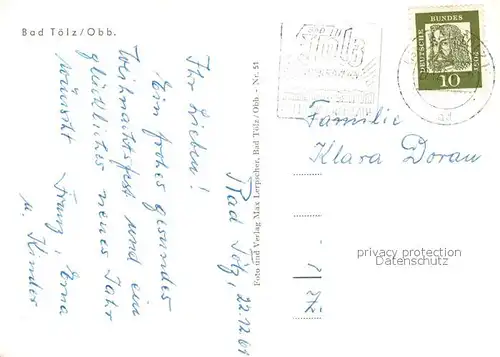 Bad Tölz/Obb.
Bad Tölz, 22.12.61
Ihr Lieben!
Ein frohes gesundes
Weihnachtsfest und ein
glückliches neues Jahr
wünscht Franz, Erna
u. Kinder
Foto und Verlag Max Lerpscher, Bad Tölz/Obb. - Nr. 51
BAD
Tölz
DEUTSCHE BUNDESPOST
10
Familie
Klara Dorau
Z.
privacy protection
Datenschutz